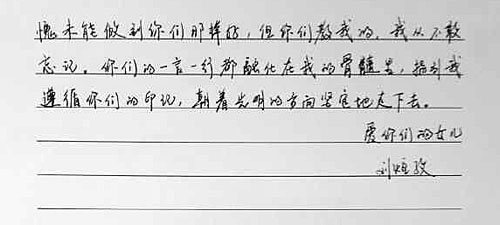 愧未能做到你们那样好，但你们教我的，我从不敢
忘记。你们的一言一行都融化在我的骨髓里，指引我
遵循你们的印记，朝着光明的方向坚定地走下去。
爱你们的女儿
刘烜孜